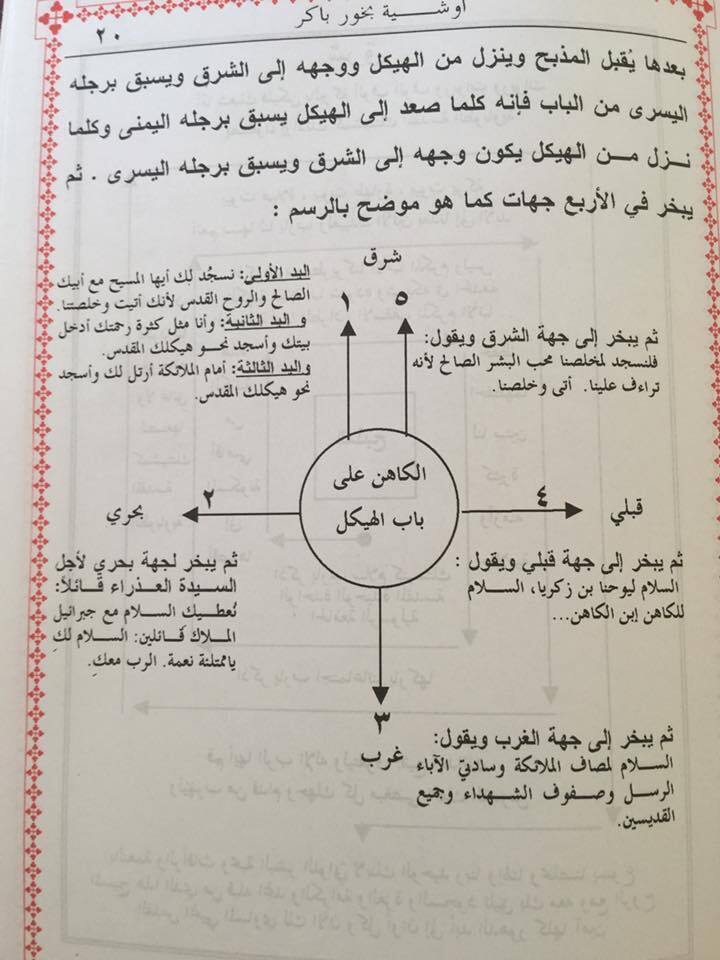 أوشية بخور باكر
٢٠
بعدها يُقبل المذبح وينزل من الهيكل ووجهه إلى الشرق ويسبق برجله
اليسرى من الباب فإنه كلما صعد إلى الهيكل يسبق برجله اليمنى وكلما
نزل من الهيكل يكون وجهه إلى الشرق ويسبق برجله اليسرى . ثم
يبخر في الأربع جهات كما هو موضح بالرسم :
شرق
١
٥
اليد الأولى: نسجُد لك أيها المسيح مع أبيك
الصالح والروح القدس لأنك أتيت وخلصتنا.
و اليد الثانية: وأنا مثل كثرة رحمتك أدخل
بيتك وأسجد نحو هيكلك المقدس.
و اليد الثالثة: أمام الملائكة أرتل لك وأسجد
نحو هيكلك المقدس.
ثم يبخر إلى جهة الشرق ويقول:
فلنسجد لمخلصنا محب البشر الصالح لأنه
تراءف علينا. أتى وخلصنا.
الكاهن على
باب الهيكل
٤
قبلي
٢
بحري
ثم يبخر إلى جهة قبلي ويقول :
السلام ليوحنا بن زكريا، السلام
للكاهن إبن الكاهن...
ثم يبخر لجهة بحري لأجل
السيدة العذراء قائلاً:
نُعطيكِ السلام مع جبرائيل
الملاك قائلين: السلام لكِ
ياممتلئة نعمة. الرب معكِ.
٣
غرب
ثم يبخر إلى جهة الغرب ويقول:
السلام لمصاف الملائكة وسادتي الآباء
الرسل وصفوف الشهداء وجميع
القديسين.